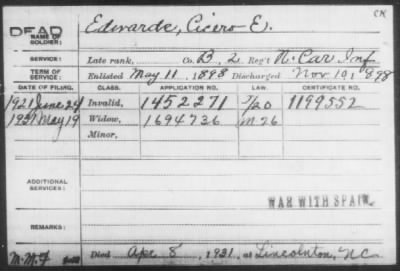 CK
DEAD
NAME OF SOLDIER: Edwards, Cicero E.
SERVICE: Late rank, Co. B, 2 Reg't N. Car Inf
TERM OF SERVICE: Enlisted May 11, 1898 Discharged Nov 19, 1898
DATE OF FILING. CLASS. APPLICATION NO. LAW. CERTIFICATE NO.
1921 June 24 Invalid, 1452271 1199552
1931 May 19 Widow, 1694736 M-26
Minor,
ADDITIONAL SERVICES:
WAR WITH SPAIN.
REMARKS:
Died Apr 8, 1931, at Lincolnton, NC